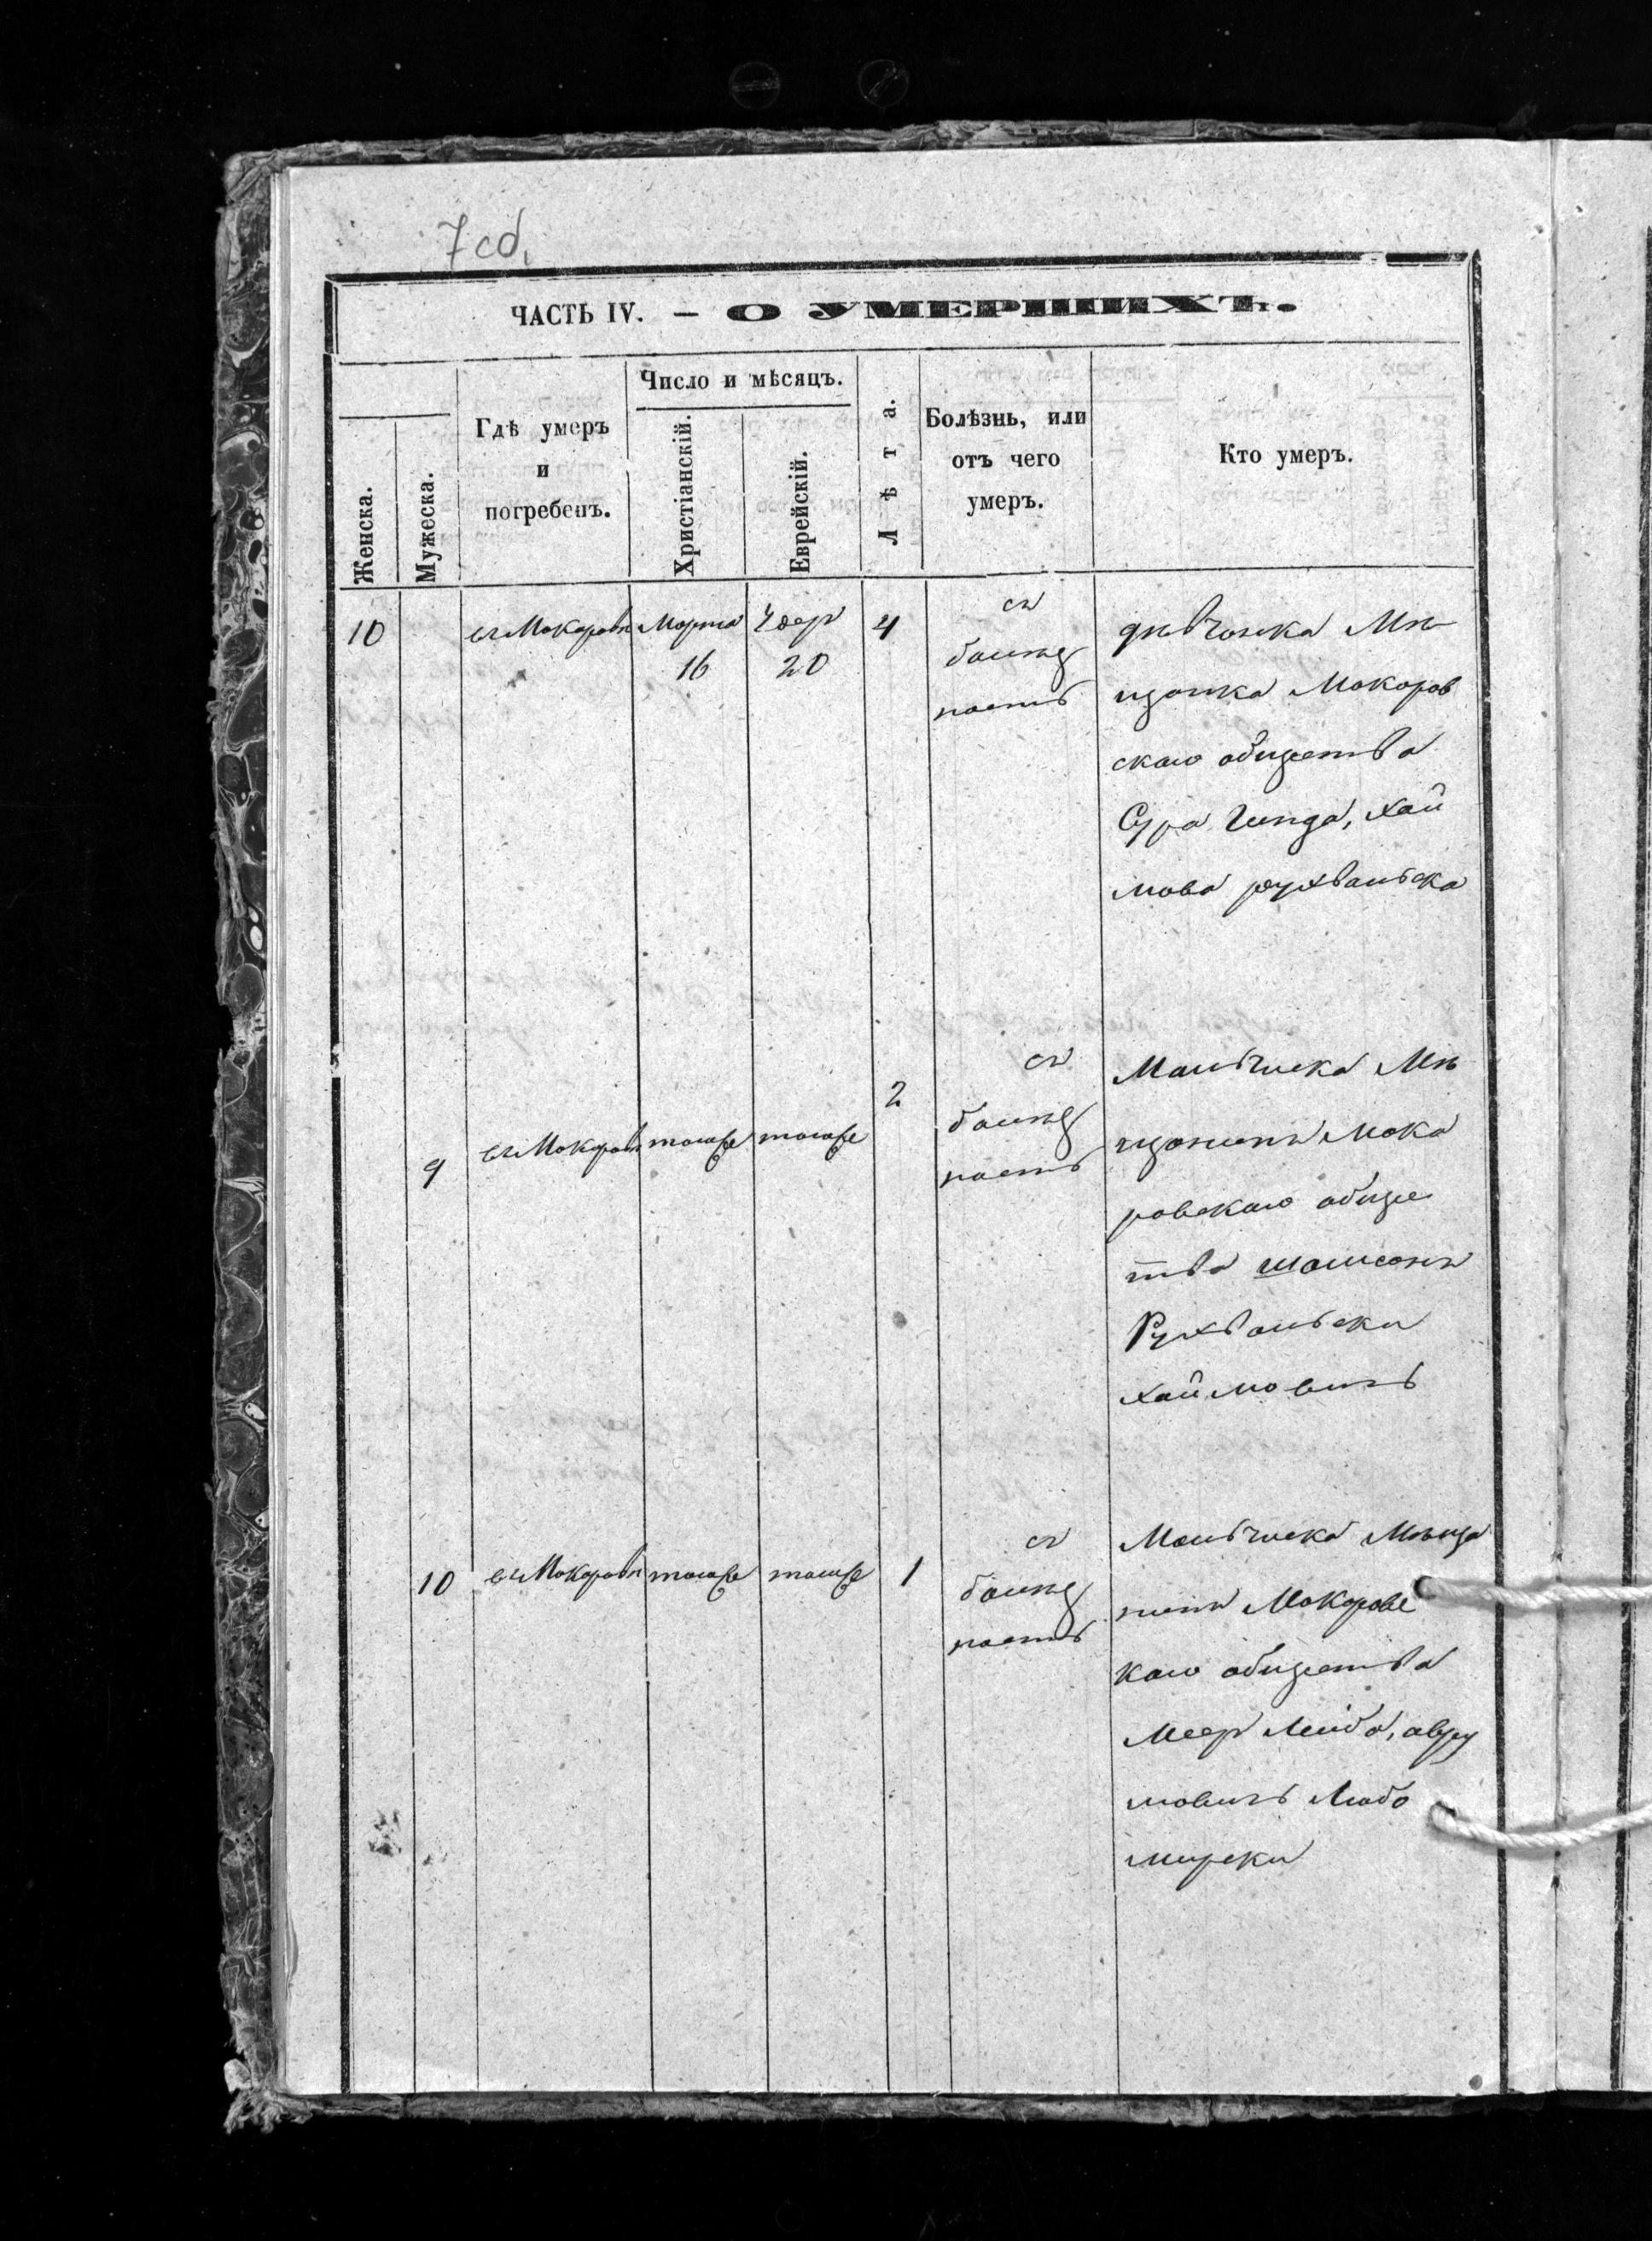 7 об.
ЧАСТЬ IV. — О УМЕРШИХЪ.
Женска.
Мужеска.
Гдѣ умеръ
и
погребенъ.
Число и мѣсяцъ.
Христіанскій.
Еврейскій.
Лѣта.
Болѣзнь, или
отъ чего
умеръ.
Кто умеръ.
10 въ Макаровѣ Марта Адер 4
16 20
съ
болѣз
ностѣ
дѣвчонка Мѣ
щанка Макаров
скаго общества
Сура Гинда, Хай
мова
9 въ Макаровѣ тогоже тогоже 2
съ
болѣз
ностѣ
Мальчика Мѣ
щанинъ Мака
ровскаго обще
тва Шамсонъ
Хаймовичъ
10 въ Макаровѣ тогоже тогоже 1
съ
болѣз
ностѣ
Мальчика Мѣща
нинъ Макаровс
каго общества
Меер Лейба, авру
мовичъ Любо
мирски